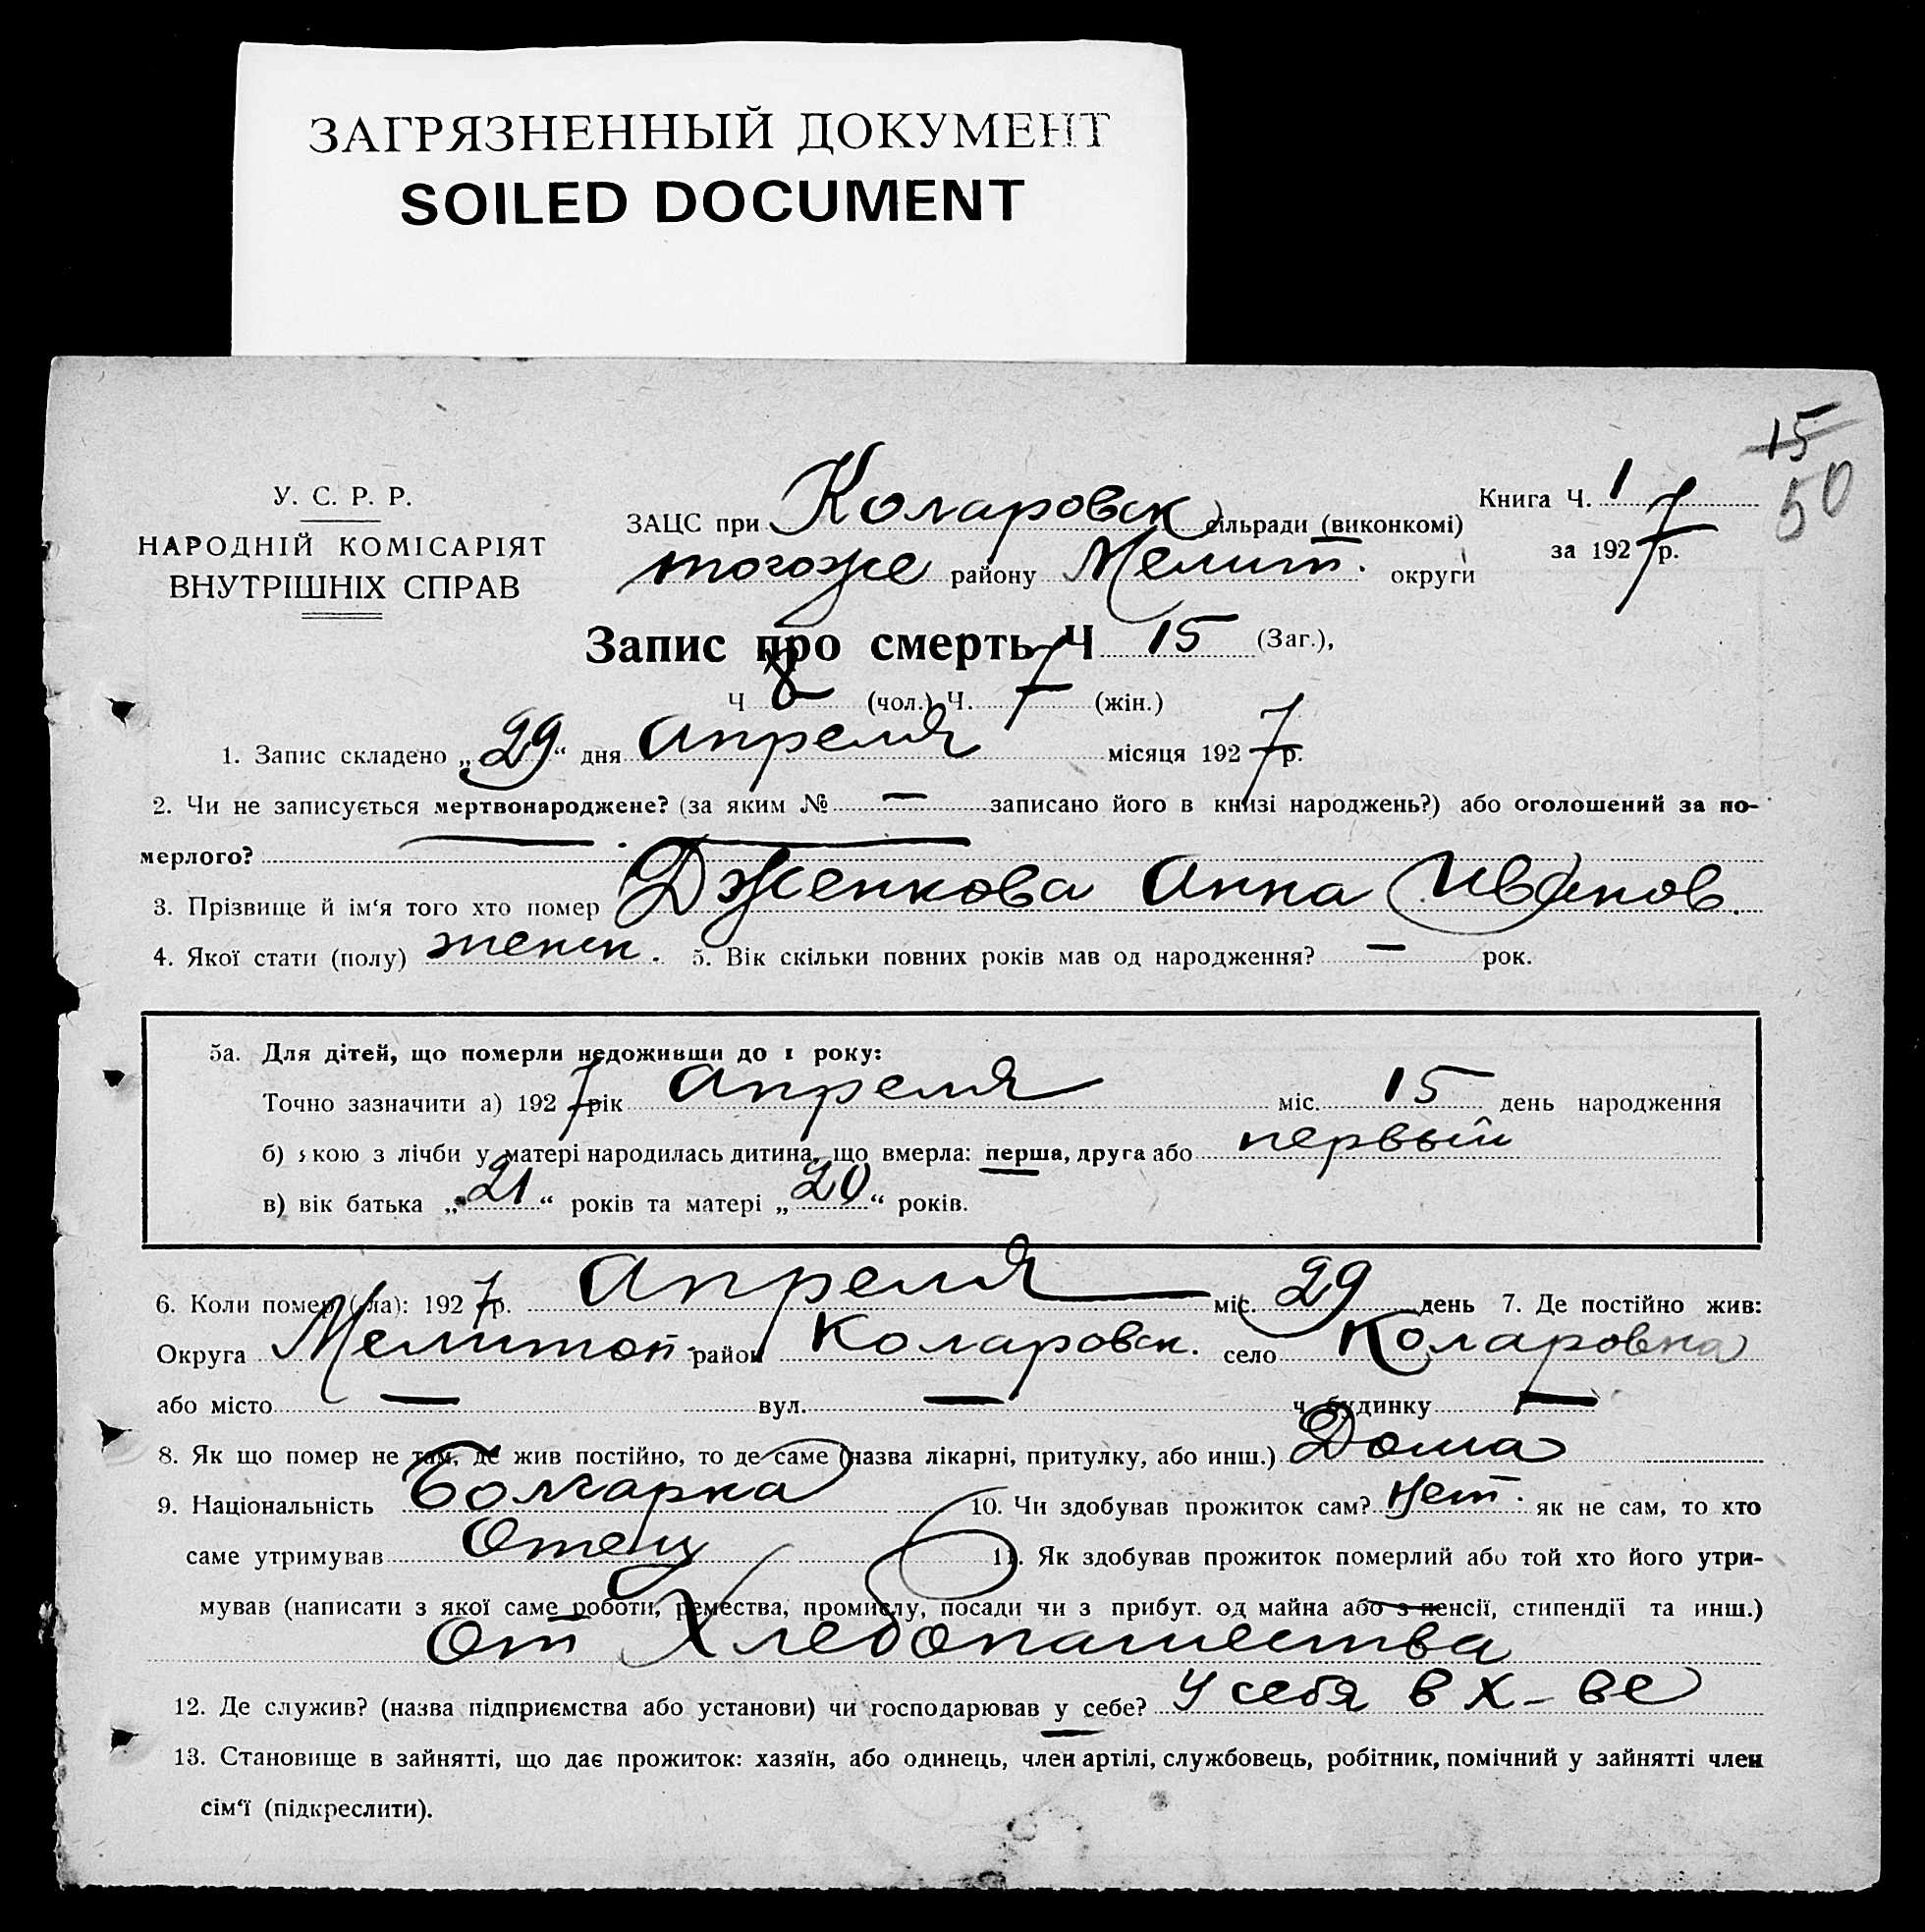 ЗАГРЯЗНЕННЫЙ ДОКУМЕНТ
SOILED DOCUMENT
15
50
У. С. Р. Р.
НАРОДНІЙ КОМІСАРІЯТ
ВНУТРІШНІХ СПРАВ
ЗАЦС при Коларовск сільради (виконкомі)
тогоже району Мелит. округи
Книга Ч. 1
за 1927 р.
Запис про смерть Ч 15 (Заг.),
Ч 8 (чол.) Ч. 7 (жін.)
1. Запис складено „29“ дня Апреля місяця 1927 р.
2. Чи не записується мертвонароджене? (за яким № — записано його в книзі народжень?) або оголошений за по-
мерлого? —
3. Прізвище й ім‘я того хто помер Дженкова Анна Иванов.
4. Якої стати (полу) женск. 5. Вік скільки повних років мав од народження? — рок.
5а. Для дітей, що померли недоживши до 1 року:
Точно зазначити а) 1927 рік Апреля міс. 15 день народження
б) якою з лічби у матері народилась дитина, що вмерла: перша, друга або первый
в) вік батька „21“ років та матері „20“ років.
6. Коли помер (ла): 1927 р. Апреля міс. 29 день 7. Де постійно жив:
Округа Мелитоп. район Коларовск. село Коларовка
або місто — вул. — ч. будинку —
8. Як що помер не там, де жив постійно, то де саме (назва лікарні, притулку, або инш.) Дома
9. Національність Болгарка 10. Чи здобував прожиток сам? Нет. як не сам, то хто
саме утримував Отец 11. Як здобував прожиток померлий або той хто його утри-
мував (написати з якої саме роботи, ремества, промислу, посади чи з прибут. од майна або з пенсії, стипендії та инш.)
От Хлебопашества
12. Де служив? (назва підприємства або установи) чи господарював у себе? У себя в х-ве
13. Становище в зайнятті, що дає прожиток: хазяїн, або одинець, член артілі, службовець, робітник, помічний у зайнятті член
сім‘ї (підкреслити).